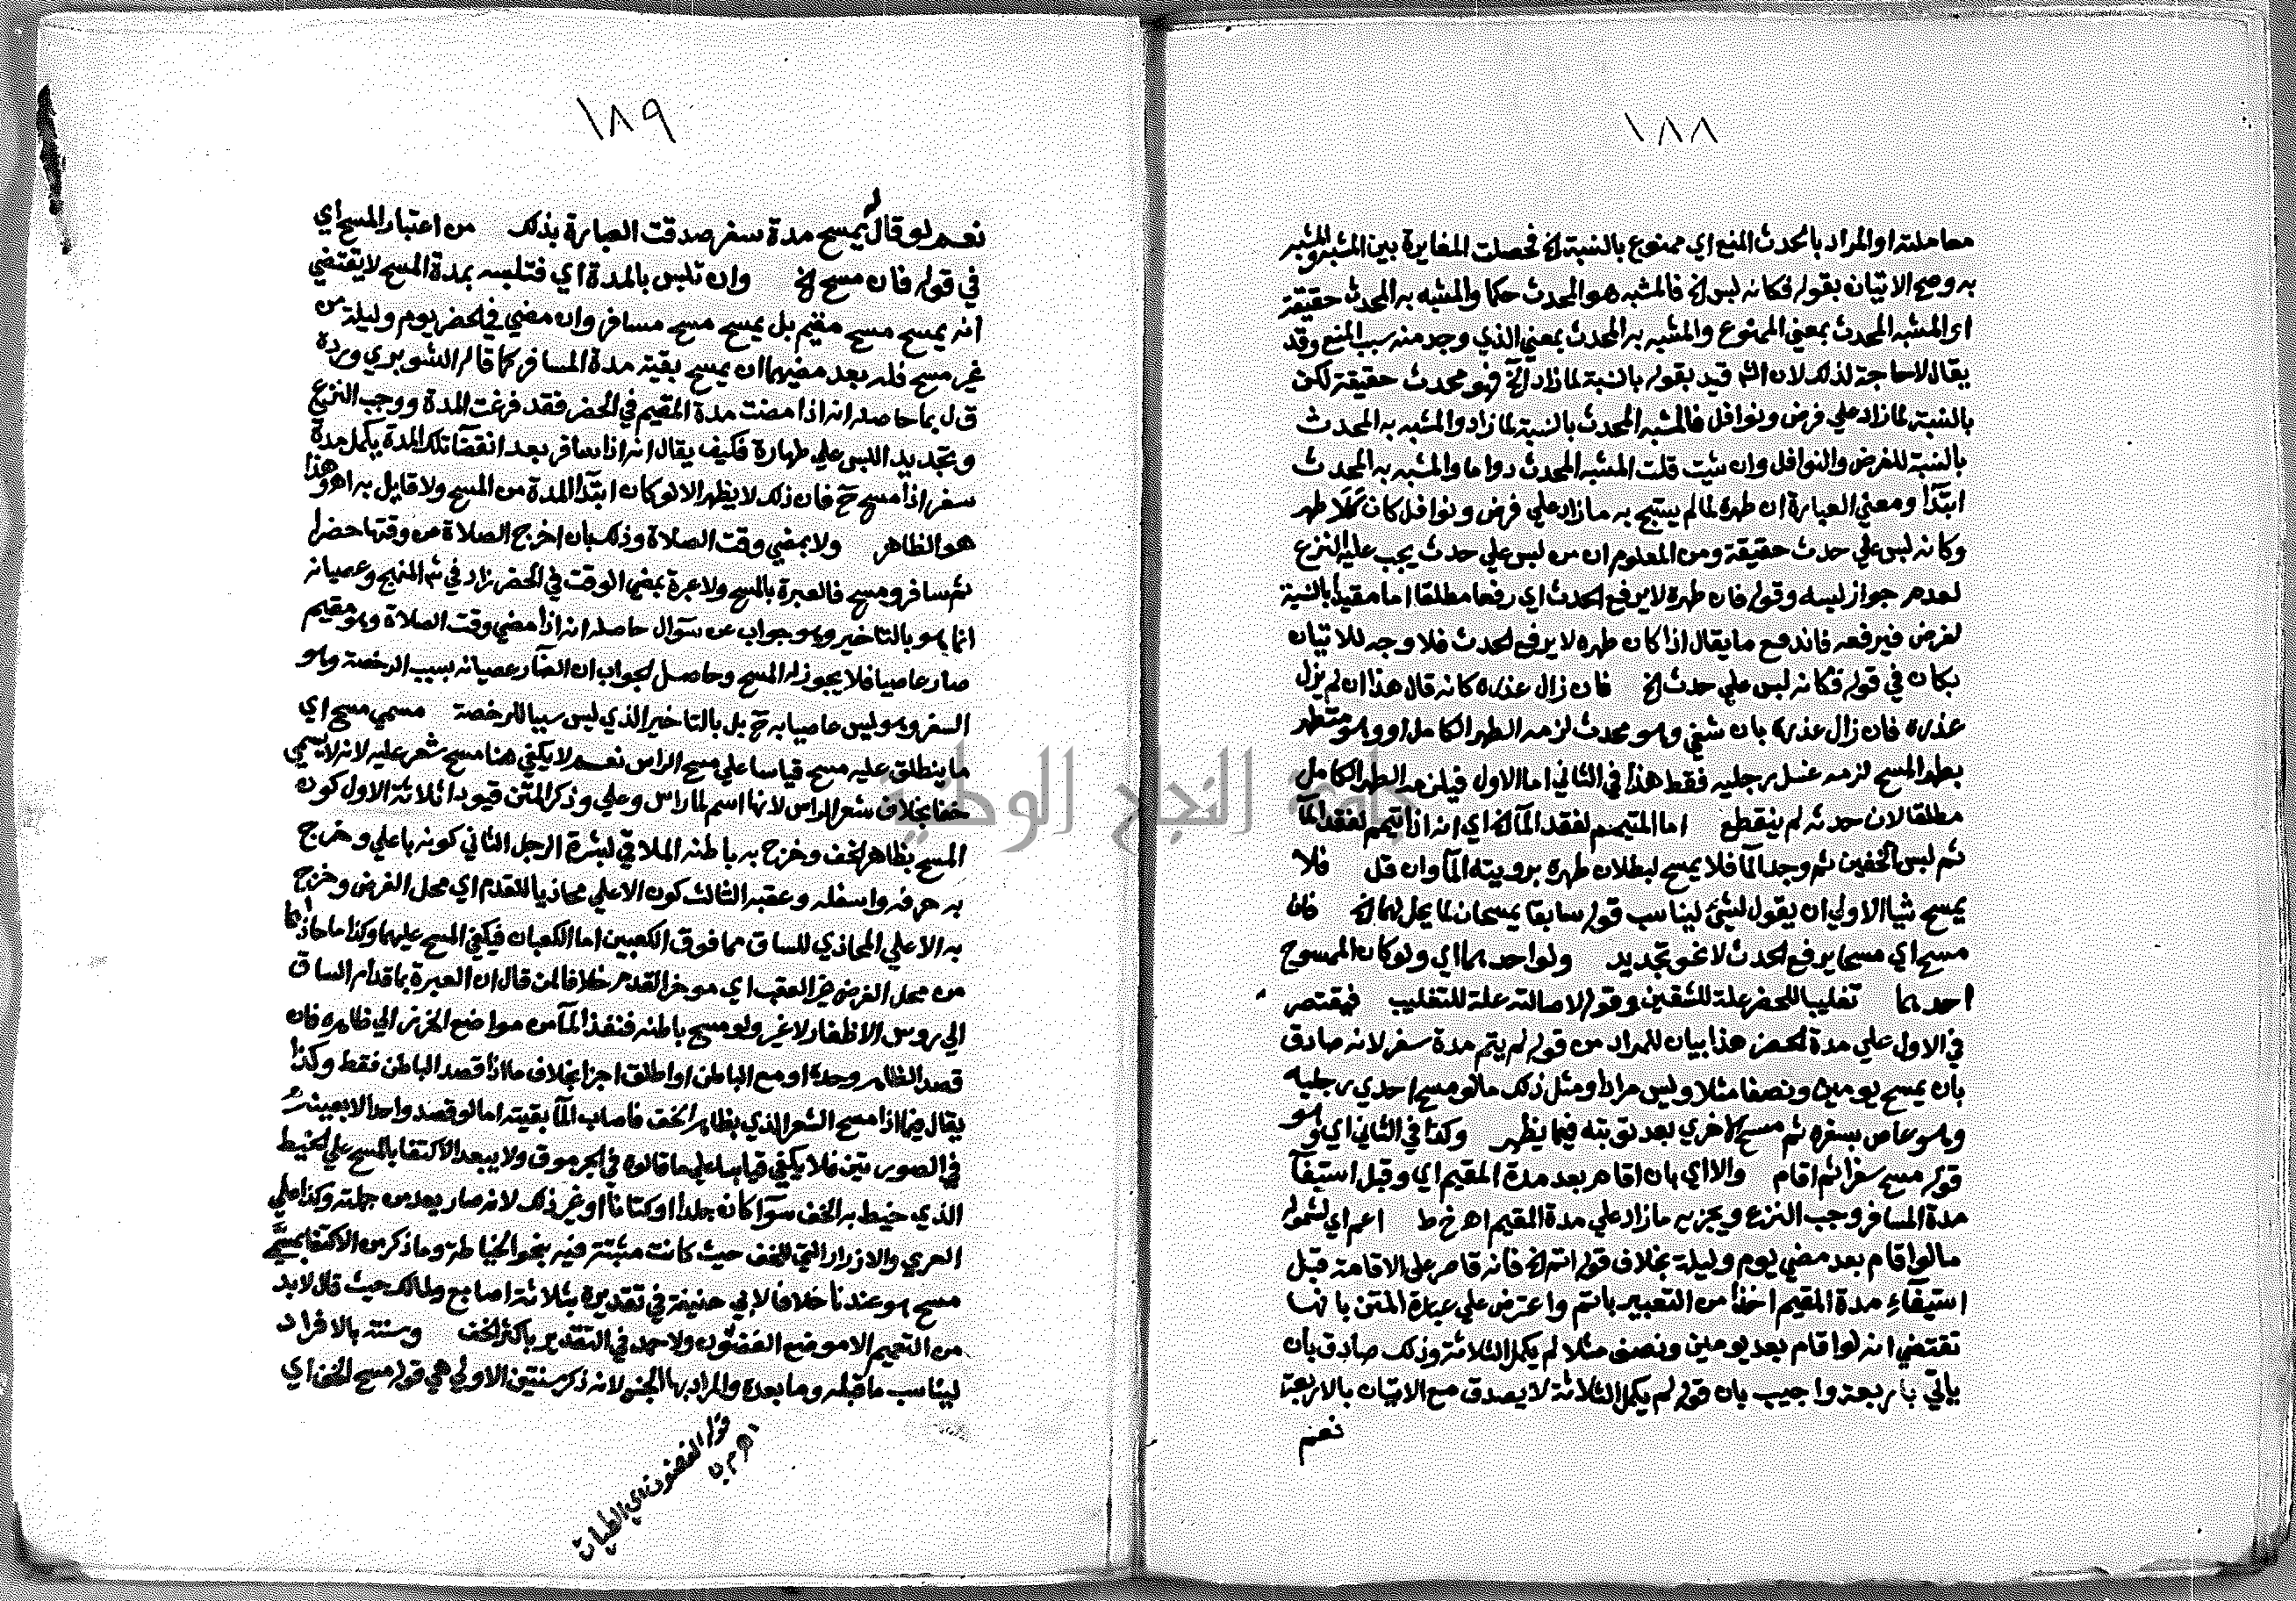 ١٨٨
معاملته او المراد بالحدث المنع اي ممنوع بالنسبة الخ فحصلت المغايرة بين المشبه والمشبه
به وصح الاتيان بقوله فكانه لبس الخ فالمشبه هو المحدث حكما والمشبه به المحدث حقيقة
او المشبه المحدث بمعني الممنوع والمشبه به المحدث بمعني الذي وجد منه سبب المنع وقد
يقال لا حاجة لذلك لان الش قيد بقوله بالنسبة لما زاد الخ فهو محدث حقيقة لكن
بالنسبة لما زاد علي فرض ونوافل فالمشبه المحدث بالنسبة لما زاد والمشبه به المحدث
بالنسبة للفرض والنوافل وان شئت قلت المشبه المحدث دواما والمشبه به المحدث
ابتدآ ومعني العبارة ان طهره لما لم يستبح به ما زاد علي فرض ونوافل كان كلا طهر
وكانه لبس علي حدث حقيقة ومن المعلوم ان من لبس علي حدث يجب عليه النزع
لعدم جواز لبسه وقوله فان طهره لا يرفع الحدث اي رفعا مطلقا اما مقيدا بالنسبة
لفرض فيرفعه فاندفع ما يقال اذا كان طهره لا يرفع الحدث فلا وجه للاتيان
بكان في قوله فكانه لبس علي حدث الخ فان زال عذره كانه قال هذا ان لم يزل
عذره فان زال عذره بان شفي وهو محدث لزمه الطهر الكامل او وهو متطهر
بطهر المسح لزمه غسل رجليه فقط هذا في الثاني اما الاول فيلزمه الطهر الكامل
مطلقا لان حدثه لم ينقطع اما المتيمم لفقد المآ الخ اي انه اذا تيمم لفقد المآ
ثم لبس الخفين ثم وجد المآ فلا يمسح لبطلان طهره برويته المآ وان قل فلا
يمسح شيا الاولي ان يقول لشئ ليناسب قوله سابقا يمسحان لما يحل لهما الخ فان
مسح اي مسحا يرفع الحدث لا نحو تجديد ولو احدهما اي ولو كان الممسوح
احدهما تغليبا للحضر علة للشقين وقوله لاصالته علة للتغليب فيقتصر
في الاول علي مدة الحضر هذا بيان للمراد من قوله لم يتم مدة سفر لانه صادق
بان يمسح يومين ونصفا مثلا وليس مرادا ومثل ذلك ما لو مسح احدي رجليه
وهو عاص بسفره ثم مسح الاخري بعد توبته فيما يظهر وكذا في الثاني اي وهو
قوله مسح سفرا ثم اقام والا اي بان اقام بعد مدة المقيم اي وقبل استيفآ
مدة المسافر وجب النزع ويجزيه ما زاد علي مدة المقيم اهـ خ ط اعم اي لشموله
ما لو اقام بعد مضي يوم وليلة بخلاف قوله اتم الخ فانه قاصر علي الاقامة قبل
استيفآء مدة المقيم اخذا من التعبير باتم واعترض علي عبارة المتن بانها
تقتضي انه لو اقام بعد يومين ونصف مثلا لم يكمل الثلاثة وذلك صادق بان
ياتي باربعة واجيب بان قوله لم يكمل الثلاثة لا يصدق مع الاتيان بالاربعة
نعم
١٨٩
نعم لو قال لم يمسح مدة سفر صدقت العبارة بذلك من اعتبار المسح اي
في قوله فان مسح الخ وان تلبس بالمدة اي فتلبسه بمدة المسح لا يقتضي
انه يمسح مسح مقيم بل يمسح مسح مسافر وان مضي في الحضر يوم وليلة من
غير مسح فله بعد مضيهما ان يمسح بقية مدة المسافر كما قاله الشوبري ورده
ق ل بما حاصله انه اذا مضت مدة المقيم في الحضر فقد فرغت المدة ووجب النزع
وتجديد اللبس علي طهارة فكيف يقال انه اذا سافر بعد انقضآ تلك المدة يكمل مدة
سفر اذا مسح ح فان ذلك لا يظهر الا لو كان ابتدآ المدة من المسح ولا قايل به اهـ وهذا
هو الظاهر ولا بمضي وقت الصلاة وذلك بان اخرج الصلاة من وقتها حضرا
ثم سافر ومسح فالعبرة بالمسح ولا عبرة بمضي الوقت في الحضر زاد في شم المنهج وعصيانه
انما هو بالتاخير وهو جواب عن سؤال حاصله انه اذا مضي وقت الصلاة وهو مقيم
صار عاصيا فلا يجوز له المسح وحاصل الجواب ان الضآر عصيانه بسبب الرخصة وهو
السفر وهو ليس عاصيا به ح بل بالتاخير الذي ليس سببا للرخصة مسمي مسح اي
ما ينطلق عليه مسح قياسا علي مسح الراس نعم لا يكفي هنا مسح شعر عليه لانه لا يسمي
خفا بخلاف شعر الراس لانها اسم لما راس وعلي وذكر المتن قيودا ثلاثة الاول كون
المسح بظاهر الخف وخرج به باطنه الملاقي لبشرة الرجل الثاني كونه باعلي وخرج
به حرفه واسفله وعقبه الثالث كون الاعلي محاذيا للقدم اي محل الفرض وخرج
به الاعلي المحاذي للساق مما فوق الكعبين اما الكعبان فيكفي المسح عليهما وكذا ما حاذاهما
من محل الفرض غير العقب اي موخر القدم خلافا لمن قال ان العبرة بما قدام الساق
الي روس الاظفار لا غير ولو مسح باطنه فنفذ المآ من مواضع الخرز الي ظاهره فان
قصد الظاهر وحده او مع الباطن او اطلق اجزا بخلاف ما اذا قصد الباطن فقط وكذا
يقال فيما اذا مسح الشعر الذي بظاهر الخف فاصاب المآ بقيته اما لو قصد واحدا لا بعينه
في الصورتين فلا يكفي قياسا علي ما قالوه في الجرموق ولا يبعد الاكتفا بالمسح علي الخيط
الذي خيط به الخف سوآ كانه جلدا او كتانا او غير ذلك لانه صار يعد من جملته وكذا علي
العري والازرار التي للخف حيث كانت مثبتة فيه بنحو الخياطة وما ذكر من الاكتفا بمسمي
مسح هو عندنا خلافا لابي حنيفة في تقديره بثلاثة اصابع ولمالك حيث قال لا بد
من التعميم الا موضع الغضون ولاحمد في التقدير باكثر الخف وسنته بالافراد
ليناسب ما قبله وما بعده والمراد بها الجنس لانه ذكر سنتين الاولي هي قوله مسح الخف اي
قوله الغضون اي الطيات